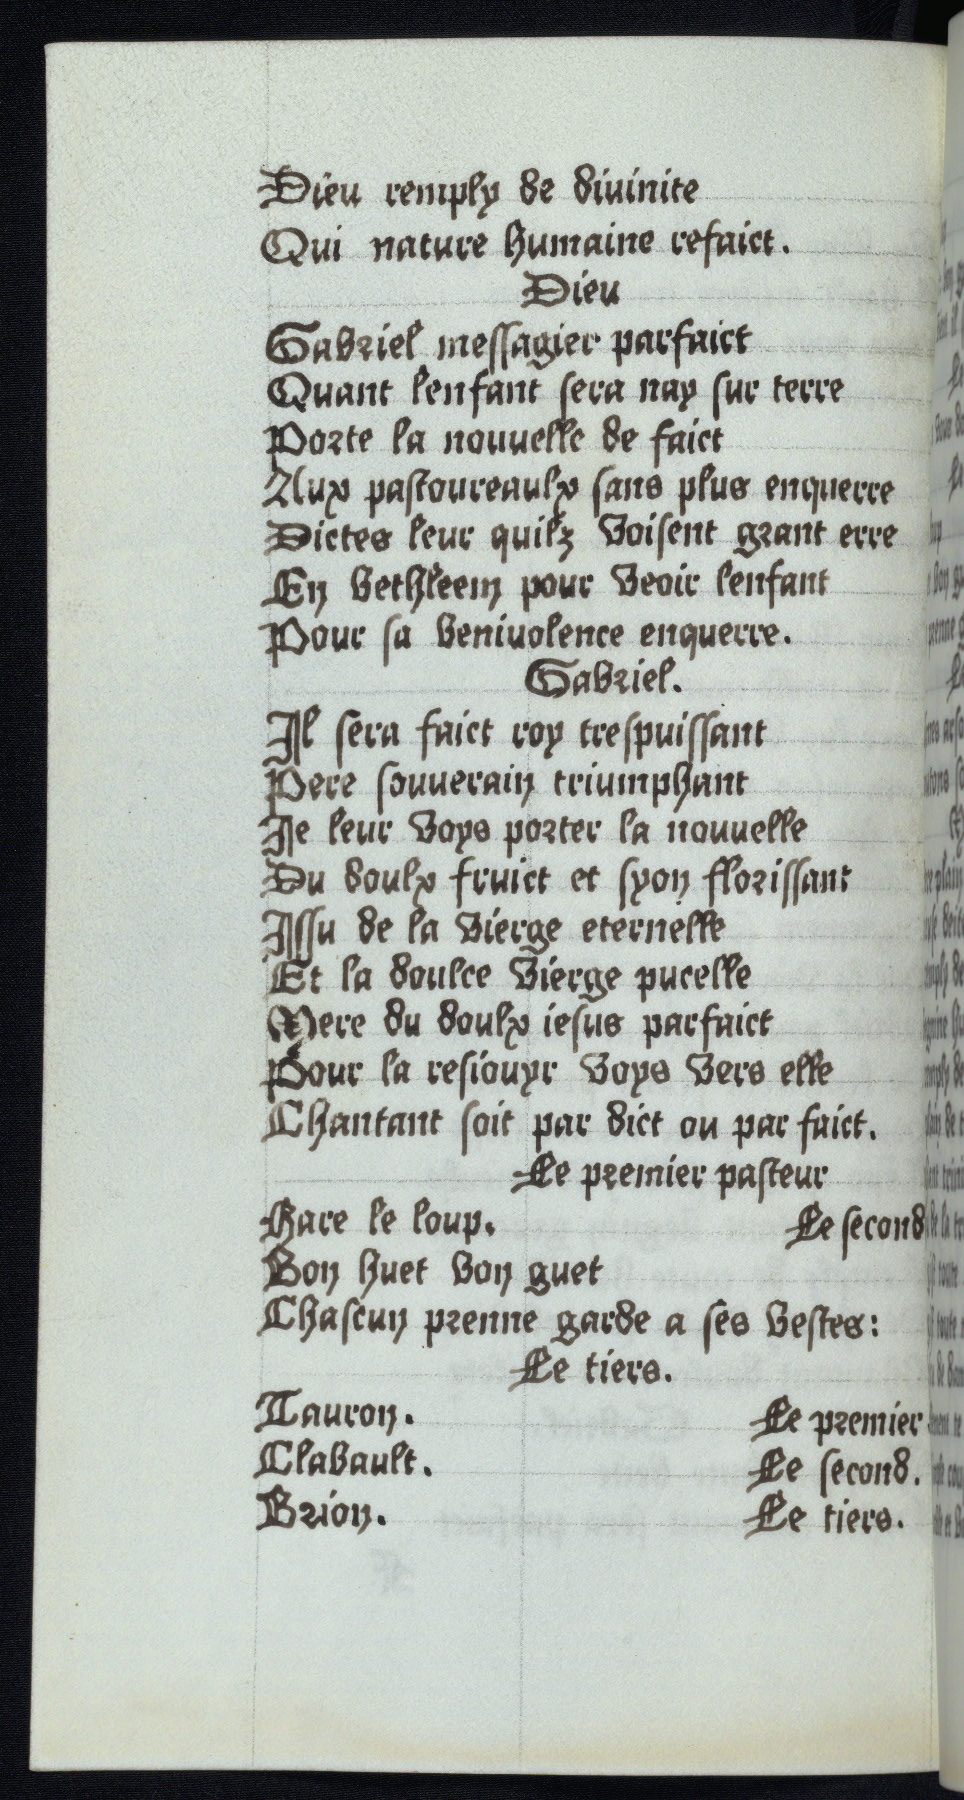 Dieu remply de diuinite
Qui nature humaine refaict.
Dieu
Gabriel messagier parfaict
Quant lenfant sera nay sur terre
Porte la nouuelle de faict
Aux pastoureaulx sans plus enquerre
Dictes leur quilz voisent grant erre
En bethleem pour veoir lenfant
Pour sa beniuolence enquerre.
Gabriel.
Il sera faict roy trespuissant
Pere souuerain triumphant
Je leur voys porter la nouuelle
Du doulx fruict et syon florissant
Issu de la vierge eternelle
Et la doulce vierge pucelle
Mere du doulx iesus parfaict
Pour la resiouyr voys vers elle
Chantant soit par dict ou par faict.
Le premier pasteur
Gare le loup. Le second
Bon huet bon guet
Chascun prenne garde a ses bestes:
Le tiers.
Tauron. Le premier
Clabault. Le second.
Brion. Le tiers.